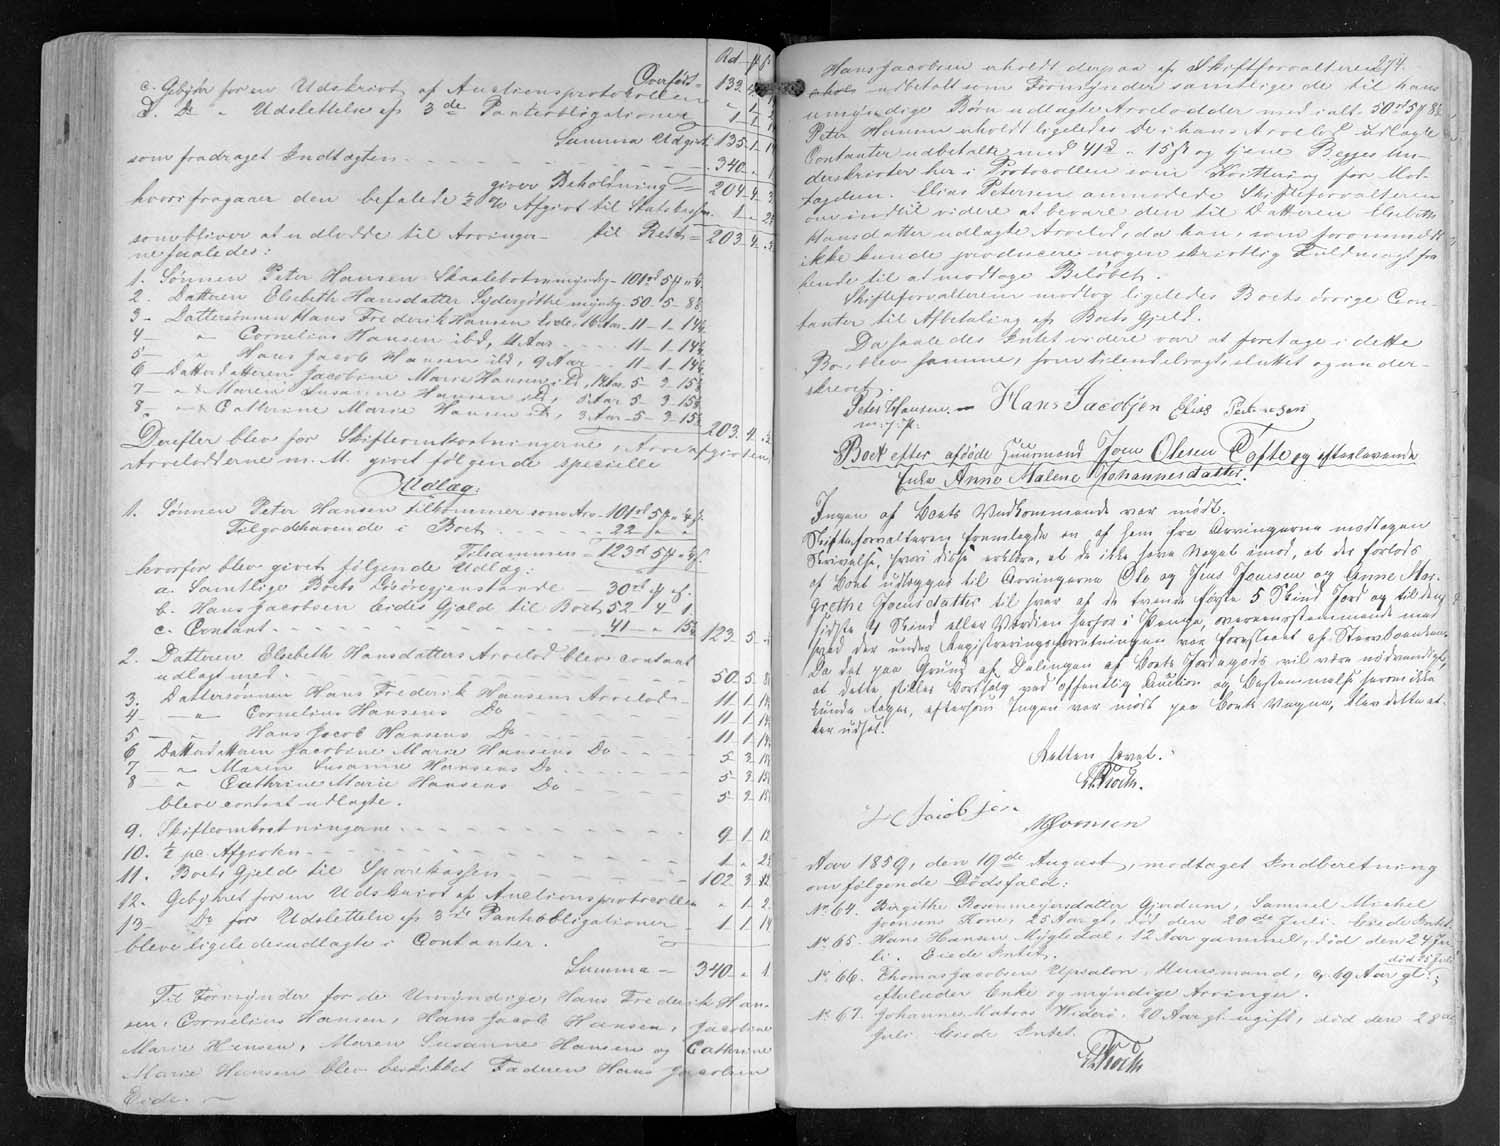 Rd. ꝟ ß
Overført 133. 4.
c. Gebyhr for en Udskrivt af Auctionsprotocollen " 1. 2
d. Do " Udslettelse af 3de Panteobligationer 1. 1. 14
Summa Udgivt 135. 1. 14
som fradraget Indtægten 340. " 1
giver Beholdning = 204. 4. 3
hvori fragaaer den befalede ½ pc Afgivt til Statskassen 1. " 2
til Rest = 203. 4.
som bliver at udlodde til Arvinger-
ne saaledes:
1. Sønnen Peter Hansen Skaalebotn myndig 101rd 5ꝟ " ß
2. Datteren Elsebeth Hansdatter Sydergøthe myndig 50. 5. 8
3. Dattersønnen Hans Frederik Hansen Eide, 16 Aar. 11. 1. 14
4 — " Cornelius Hansen ibd, 11 Aar 11. 1. 14
5 — " Hans Jacob Hansen ibd, 9 Aar 11. 1. 14
6 — Datterdatteren Jacobine Marie Hansen ibd, Aar 5. 3. 15
7 — " Maren Susanne Hansen ibd, Aar 5. 3. 15
8 — " Cathrine Marie Hansen ibd, 3 Aar 5. 3. 15
203. 4.
Derefter blev for Skifteomkostningerne, Arveafgivten,
Arvelodderne m. M. givet følgende specielle
Udlæg:
1. Sønnen Peter Hansen tilkommer som Arv 101rd 5ꝟ " ß
Tilgodehavende i Boet 22 " "
Tilsammen = 123rd 5ꝟ " ß
hvorfor blev givet følgende Udlæg:
a. Samtlige Boets Løsøregjenstande 30rd " ꝟ " ß
b. Hans Jacobsen Eides Gjæld til Boet 52. 4. 1.
c. Contant 41. " 15 123. 5.
2. Datteren Elsebeth Hansdatters Arvelod blev contant
udlagt med 50. 5. 8
3. Dattersønnen Hans Frederik Hansens Arvelod 11. 1. 14
4 — " Cornelius Hansens Do 11. 1. 14
5 — " Hans Jacob Hansens Do 11. 1. 14
6 Datterdatteren Jacobine Marie Hansens Do 5. 3. 15
7 — " Maren Susanne Hansens Do 5. 3. 15
8 — " Cathrine Marie Hansens Do 5. 3. 15
bleve contant udlagte.
9. Skifteomkostningerne 9. 1. 12
10. ½ pc. Afgivten 1. " 2
11. Boets Gjæld til Sparekassen 102. 3. 12
12. Gebyhret for en Udskrivt af Auctionsprotocollen " 1. 2
13. Do for Udslettelse af 3de Panteobligationer 1. 1. 14
bleve ligeledes udlagte i Contanter.
Summa — 340. " 1
Til Formynder for de Umyndige, Hans Frederik Han-
sen, Cornelius Hansen, Hans Jacob Hansen, Jacobine
Marie Hansen, Maren Susanne Hansen og Cathrine
Marie Hansen blev beskikket Faderen Hans Jacobsen
Eide.
274.
Hans Jacobsen erholdt derpaa af Skifteforvalteren
udbetalt som Formynder samtlige de til hans
umyndige Børn udlagte Arvelodder med ialt 50rd 5ꝟ 8ß
Peter Hansen erholdt ligeledes de i hans Arvelod udlagte
Contanter udbetalte med 41rd " 15ß og tjene Begges Un-
derskrivter her i Protocollen som Kvittering for Mod-
tagelsen. Elias Petersen anmodede Skifteforvalteren
om indtil videre at bevare den til Datteren Elsebeth
Hansdatter udlagte Arvelod, da han, som foranmeldt
ikke kunde producere nogen skrivtlig Fuldmagt fra
hende til at modtage Beløbet.
Skifteforvalteren modtog ligeledes Boets øvrige Con-
tanter til Afbetaling af Boets Gjæld.
Da saaledes Intet videre var at foretage i dette
Bo, blev samme, som tilendebragt, sluttet og under-
skrevet.
Peter Hansen. — Hans Jacobsen Elias Petersen
m. f. P.
Boet efter afdøde Huusmand Joen Olesen Tofte og efterlevende
Enke Anne Malene Johannesdatter.
Ingen af Boets Vedkommende var mødt.
Skifteforvalteren fremlagde en af ham fra Arvingerne modtagen
Skrivelse, hvori disse erklære, at de ikke have Noget imod, at der forlods
af Boet udlægges til Arvingerne Ole og Jens Joensen og Anne Mar-
grethe Joensdatter til hver af de tvende første 5 Skind Jord og til den
sidste 4 Skind eller Værdien herfor i Penge, overensstemmende med
hvad der under Registreringsforretningen var foreslaaet af
Da det paa Grund af Delingen af Boets Jordegods vil være nødvendigt,
at dette stilles Bortsalg ved offentlig Auction og Bestemmelse herom ikke
kunde tages, eftersom Ingen var mødt paa Boets Vegne, blev dette at-
ter udsat.
Retten hævet.
HJacobsen
MJoensen
Aar 1859, den 19de August, modtaget Indberetning
om følgende Dødsfald:
No 64. Birgithe Rosenmeyersdatter Gjordum, Samuel Michel
Joensens Kone, 25 Aar gl, død den 20de Juli. Eiede Intet.
No 65. Hans Hansen Mygledal, 12 Aar gammel, død den 24 Ju-
li. Eiede Intet.
No 66. Thomas Jacobsen Upsalon, Huusmand, 69 Aar gl, død 15 Juli;
efterlader Enke og myndige Arvinger.
No 67. Johannes Matras Viderø, 20 Aar gl. ugift, død den 28de
Juli. Eiede Intet.